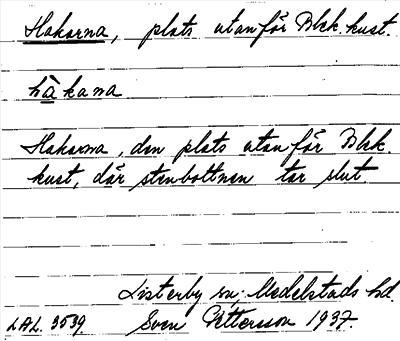 Hakarna, plats utanför Blek. kust.
hàkana
Hakarna, den plats utanför Blek.
kust, där stenbottnen tar slut.
Listerby sn; Medelstads hd.
LAL. 3539. Sven Pettersson 1937.